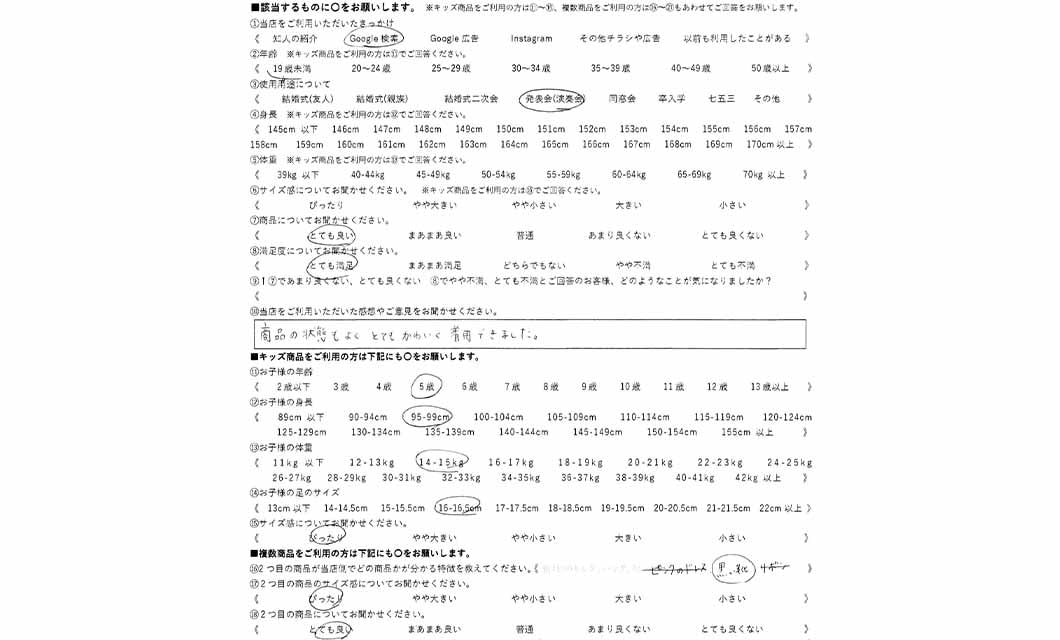 ■該当するものに〇をお願いします。 ※キッズ商品をご利用の方は⑪～⑮、複数商品をご利用の方は⑯～㉑もあわせてご回答をお願いします。
①当店をご利用いただいたきっかけ
《 知人の紹介 Google 検索 Google 広告 Instagram その他チラシや広告 以前も利用したことがある 》
②年齢 ※キッズ商品をご利用の方は⑪でご回答ください。
《 19歳未満 20～24歳 25～29歳 30～34歳 35～39歳 40～49歳 50歳以上 》
③使用用途について
《 結婚式(友人) 結婚式(親族) 結婚式二次会 発表会(演奏会) 同窓会 卒入学 七五三 その他 》
④身長 ※キッズ商品をご利用の方は⑫でご回答ください。
《 145cm 以下 146cm 147cm 148cm 149cm 150cm 151cm 152cm 153cm 154cm 155cm 156cm 157cm
158cm 159cm 160cm 161cm 162cm 163cm 164cm 165cm 166cm 167cm 168cm 169cm 170cm 以上 》
⑤体重 ※キッズ商品をご利用の方は⑬でご回答ください。
《 39kg 以下 40-44kg 45-49kg 50-54kg 55-59kg 60-64kg 65-69kg 70kg 以上 》
⑥サイズ感についてお聞かせください。 ※キッズ商品をご利用の方は⑮でご回答ください。
《 ぴったり やや大きい やや小さい 大きい 小さい 》
⑦商品についてお聞かせください。
《 とても良い まあまあ良い 普通 あまり良くない とても良くない 》
⑧満足度についてお聞かせください。
《 とても満足 まあまあ満足 どちらでもない やや不満 とても不満 》
⑨1⑦であまり良くない、とても良くない ⑧でやや不満、とても不満とご回答のお客様、どのようなことが気になりましたか？
《 》
⑩当店をご利用いただいた感想やご意見をお聞かせください。
商品の状態もよく とてもかわいく 着用できました。
■キッズ商品をご利用の方は下記にも〇をお願いします。
⑪お子様の年齢
《 2歳以下 3歳 4歳 5歳 6歳 7歳 8歳 9歳 10歳 11歳 12歳 13歳以上 》
⑫お子様の身長
《 89cm 以下 90-94cm 95-99cm 100-104cm 105-109cm 110-114cm 115-119cm 120-124cm
125-129cm 130-134cm 135-139cm 140-144cm 145-149cm 150-154cm 155cm 以上 》
⑬お子様の体重
《 11kg 以下 12-13kg 14-15kg 16-17kg 18-19kg 20-21kg 22-23kg 24-25kg
26-27kg 28-29kg 30-31kg 32-33kg 34-35kg 36-37kg 38-39kg 40-41kg 42kg 以上 》
⑭お子様の足のサイズ
《 13cm以下 14-14.5cm 15-15.5cm 16-16.5cm 17-17.5cm 18-18.5cm 19-19.5cm 20-20.5cm 21-21.5cm 22cm 以上 》
⑮サイズ感についてお聞かせください。
《 ぴったり やや大きい やや小さい 大きい 小さい 》
■複数商品をご利用の方は下記にも〇をお願いします。
⑯2つ目の商品が当店側でどの商品かが分かる特徴を教えてください。《 ピンクのドレス 黒い靴 》
⑰2つ目の商品のサイズ感についてお聞かせください。
《 ぴったり やや大きい やや小さい 大きい 小さい 》
⑱2つ目の商品についてお聞かせください。
《 とても良い まあまあ良い 普通 あまり良くない とても良くない 》